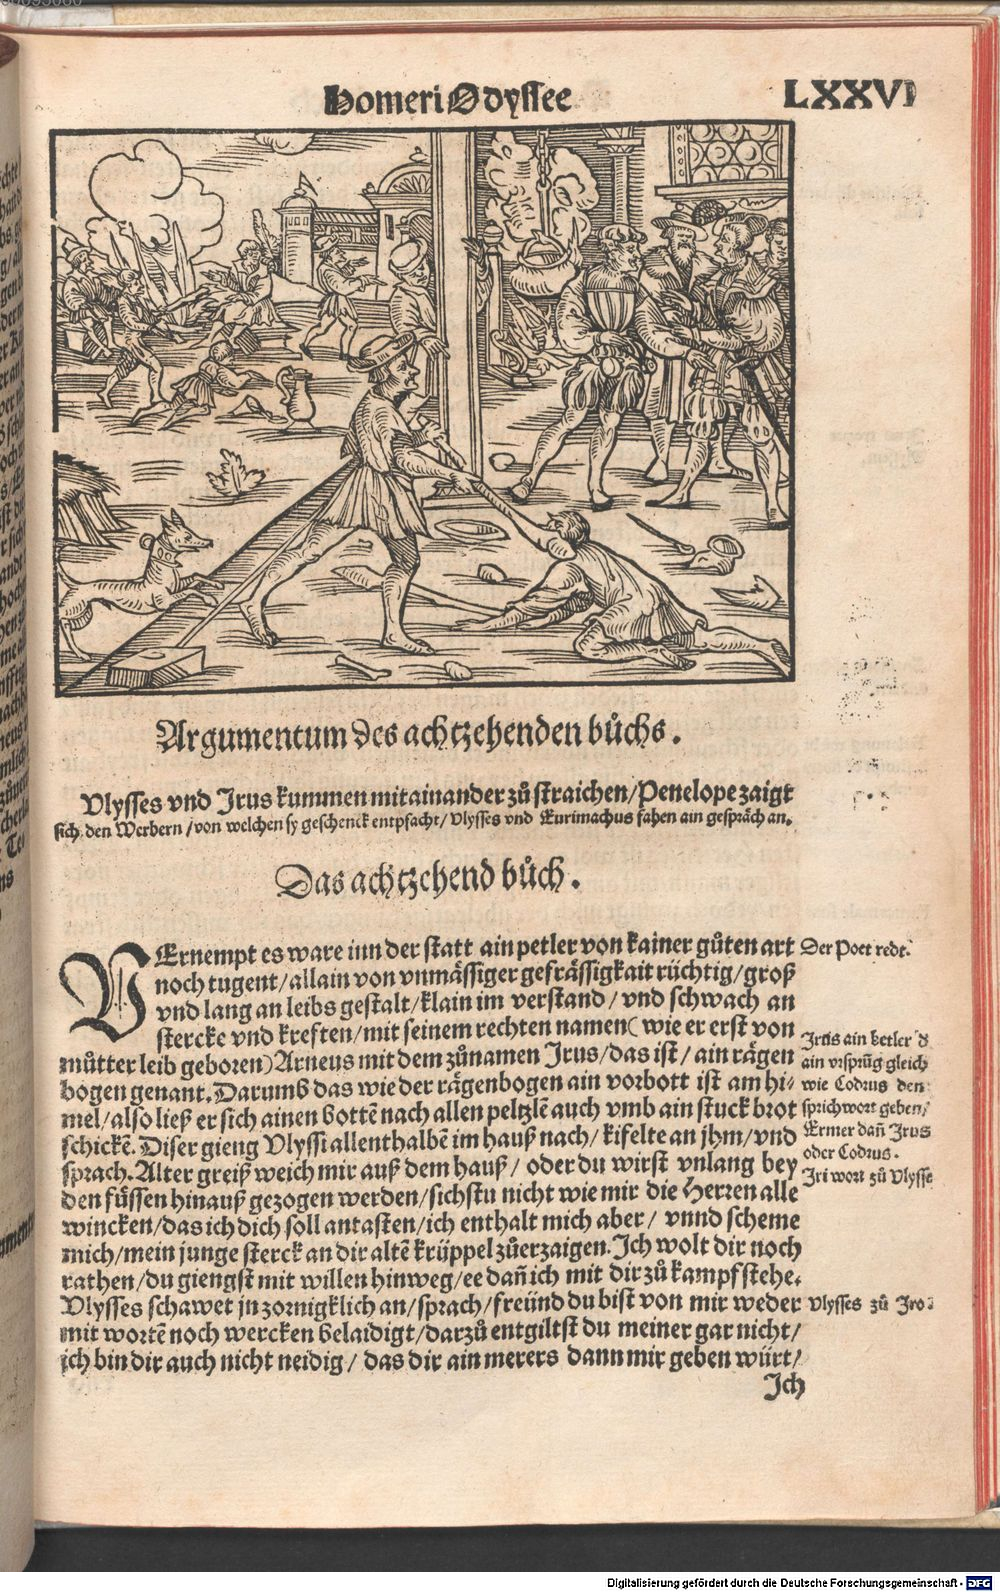 Homeri Odyssee
LXXVI
Argumentum des achtzehenden bůchs.
Ulysses vnd Irus kummen mitainander zů straichen/Penelope zaigt
sich den Werbern/von welchen sy geschenck entpfacht/Ulysses vnd Eurimachus fahen ain gespräch an.
Das achtzehend bůch.
VErnempt es ware inn der statt ain petler von kainer gůten art
noch tugent/allain von vnmässiger gefrässigkait rüchtig/groß
vnd lang an leibs gestalt/klain im verstand/vnd schwach an
stercke vnd kreften/mit seinem rechten namen(wie er erst von
můtter leib geboren)Arneus mit dem zůnamen Irus/das ist/ain rägen
bogen genant.Darumb das wie der rägenbogen ain vorbott ist am hi⸗
mel/also ließ er sich ainen bottē nach allen peltzlē auch vmb ain stuck brot
schickē.Diser gieng Ulyssi allenthalbē im hauß nach/kifelte an jhm/vnd
sprach.Alter greiß weich mir auß dem hauß/oder du wirst vnlang bey
den füssen hinauß gezogen werden/sichstu nicht wie mir die Herren alle
wincken/das ich dich soll antasten/ich enthalt mich aber/vnnd scheme
mich/mein junge sterck an dir altē krüppel zůerzaigen.Ich wolt dir noch
rathen/du giengst mit willen hinweg/ee dañ ich mit dir zů kampf stehe.
Ulysses schawet jn zornigklich an/sprach/freünd du bist von mir weder
mit wortē noch wercken belaidigt/darzů entgiltst du meiner gar nicht/
ich bin dir auch nicht neidig/das dir ain merers dann mir geben würt/
Ich
Der Poet redt.
Irus ain betler
ain vrsprūg gleich
wie Codrus den
sprichwort geben/
Ermer dañ Irus
oder Codrus.
Iri wort zů Ulysse
Ulysses zů Iro.
Digitalisierung gefördert durch die Deutsche Forschungsgemeinschaft - DFG